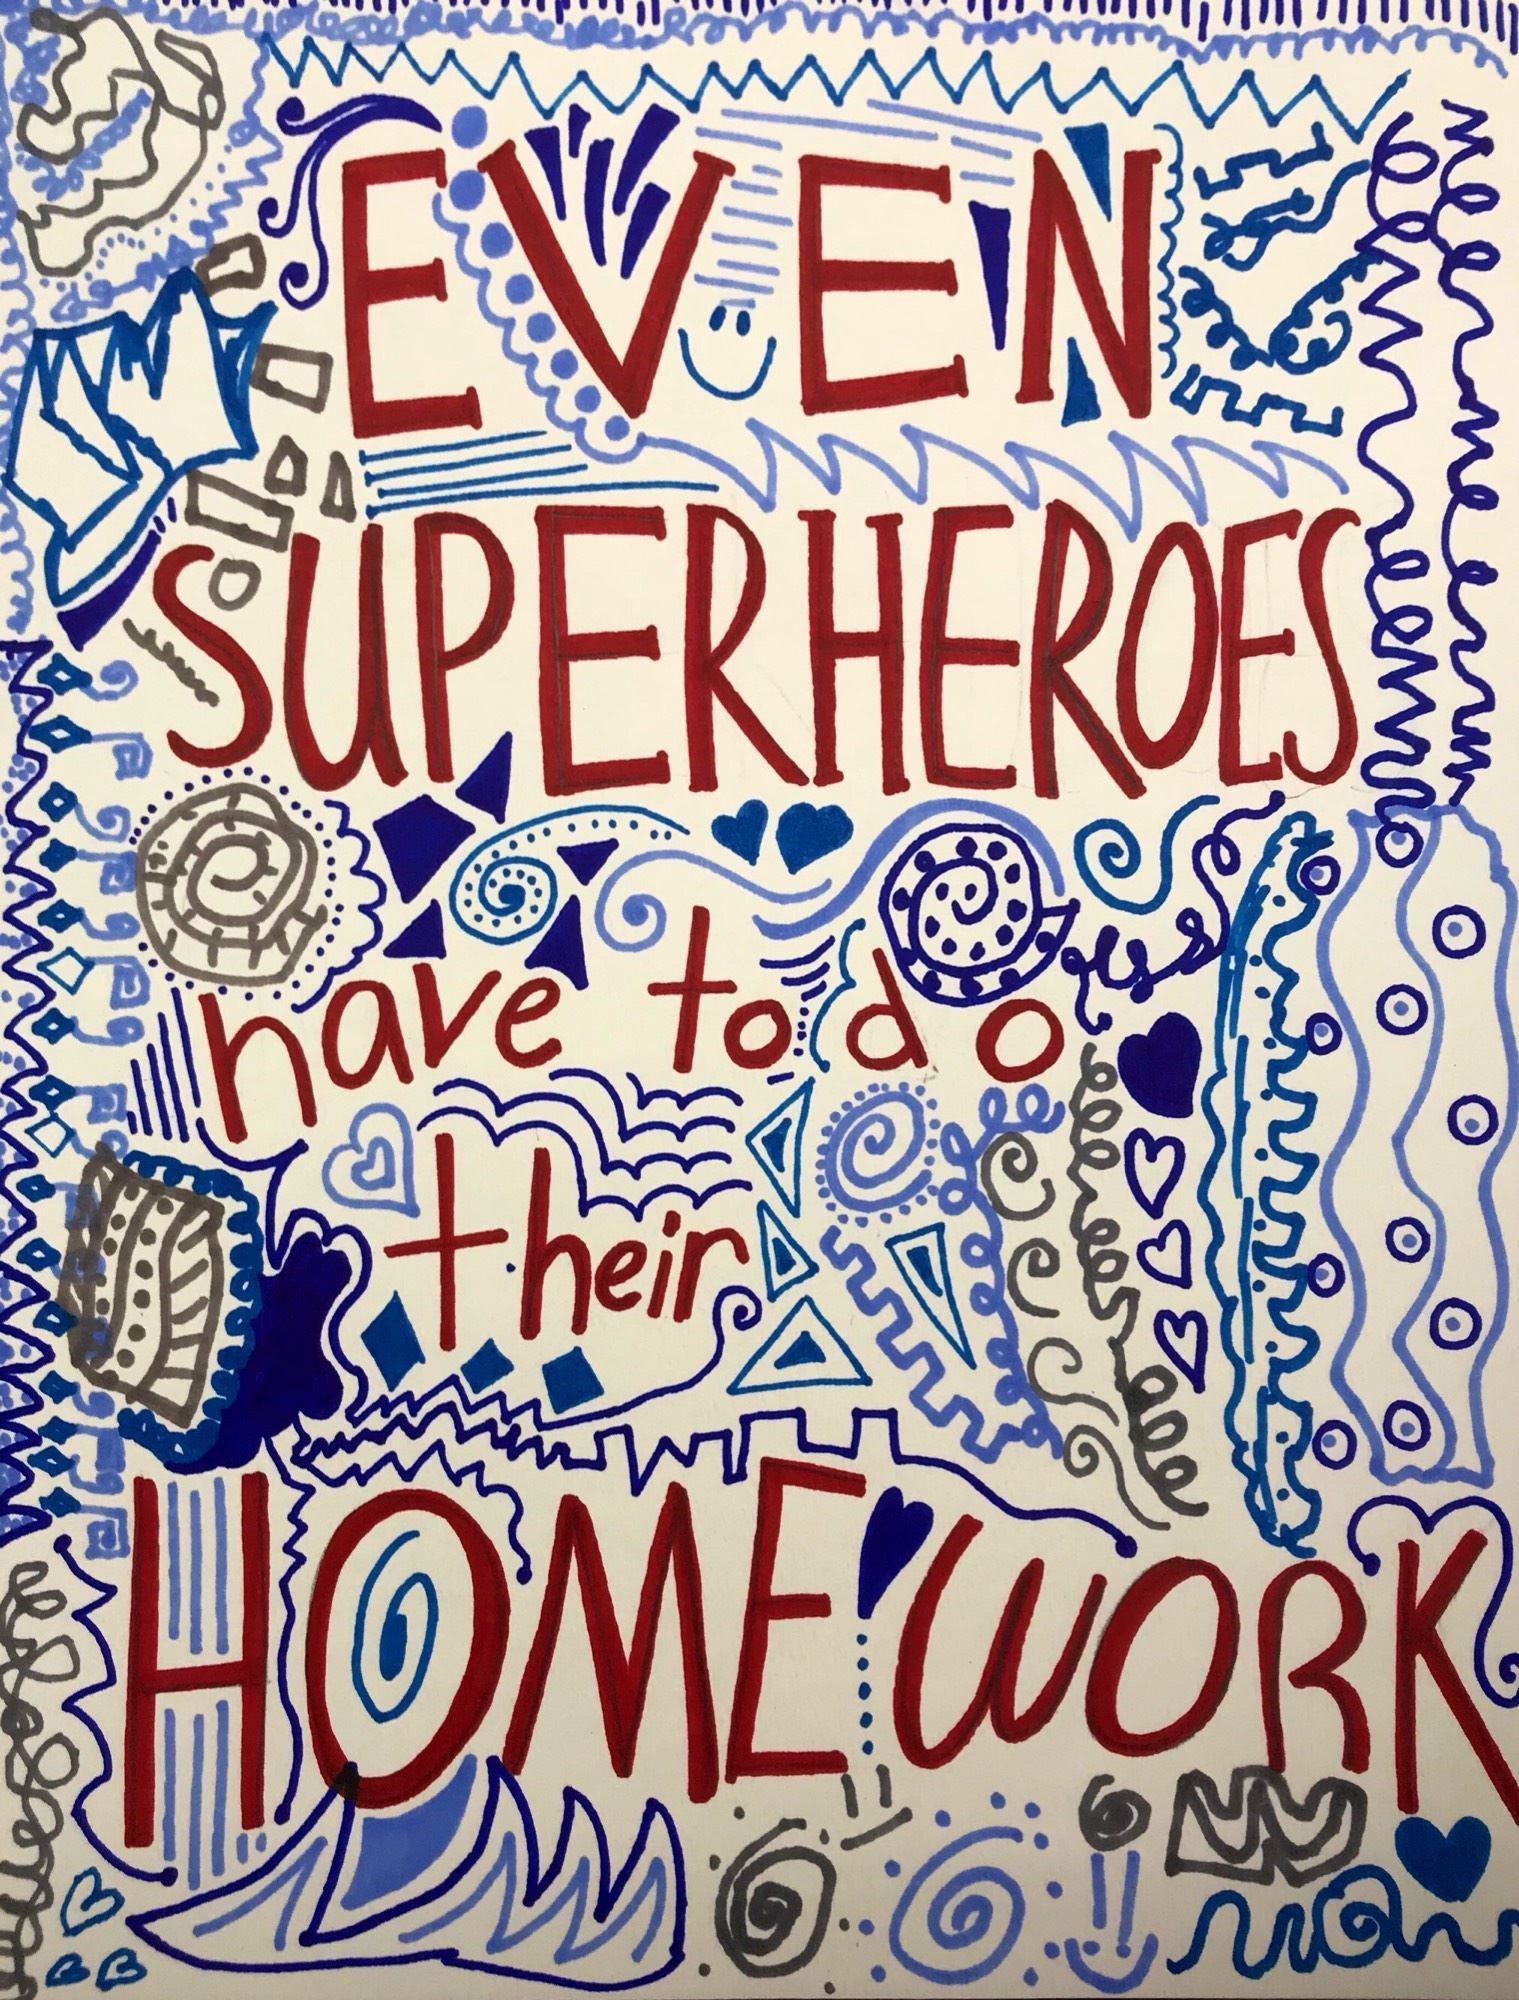 EVEN
SUPERHEROES
have to do
their
HOMEWORK